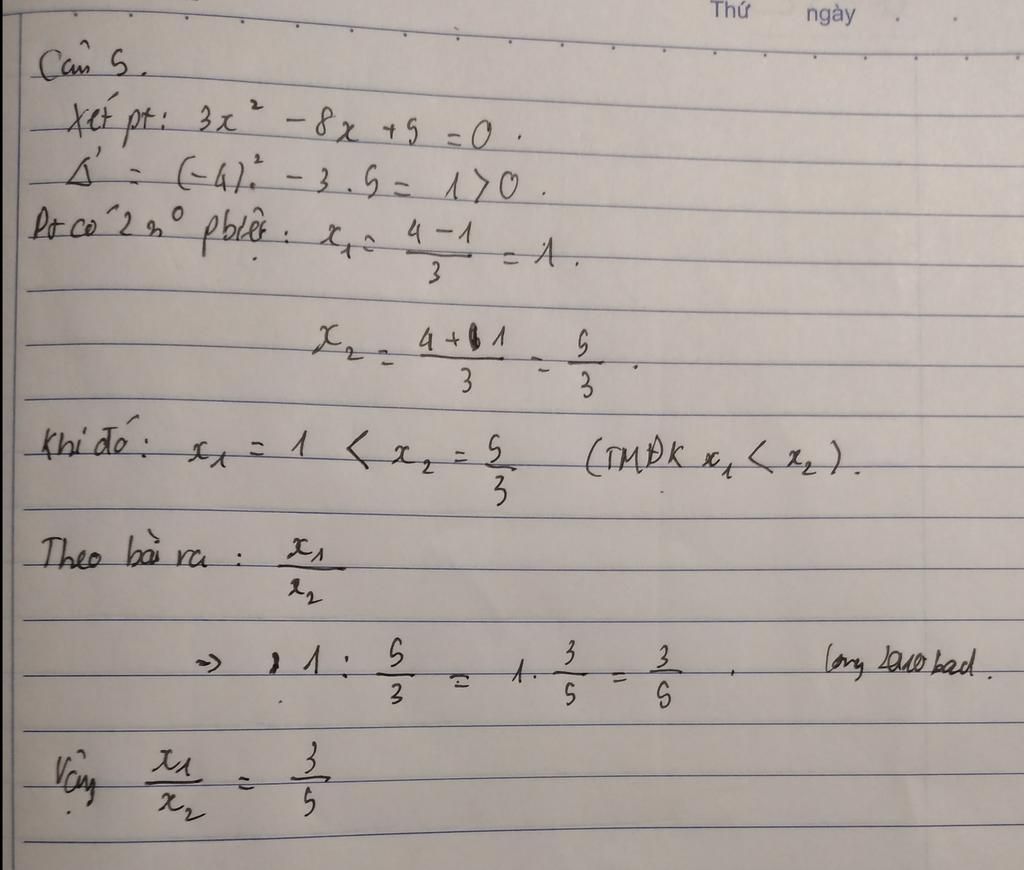 Thứ ngày . .
Câu 5.
Xét pt: 3x² - 8x + 5 = 0.
Δ' = (-4)² - 3.5 = 1 > 0.
Pt có 2 n⁰ pbiệt: x₁ = (4 - 1)/3 = 1.
x₂ = (4 + 1)/3 = 5/3.
Khi đó: x₁ = 1 < x₂ = 5/3 (TMĐK x₁ < x₂).
Theo bài ra: x₁/x₂
⇒ 1 : 5/3 = 1 . 3/5 = 3/5.
Vậy x₁/x₂ = 3/5